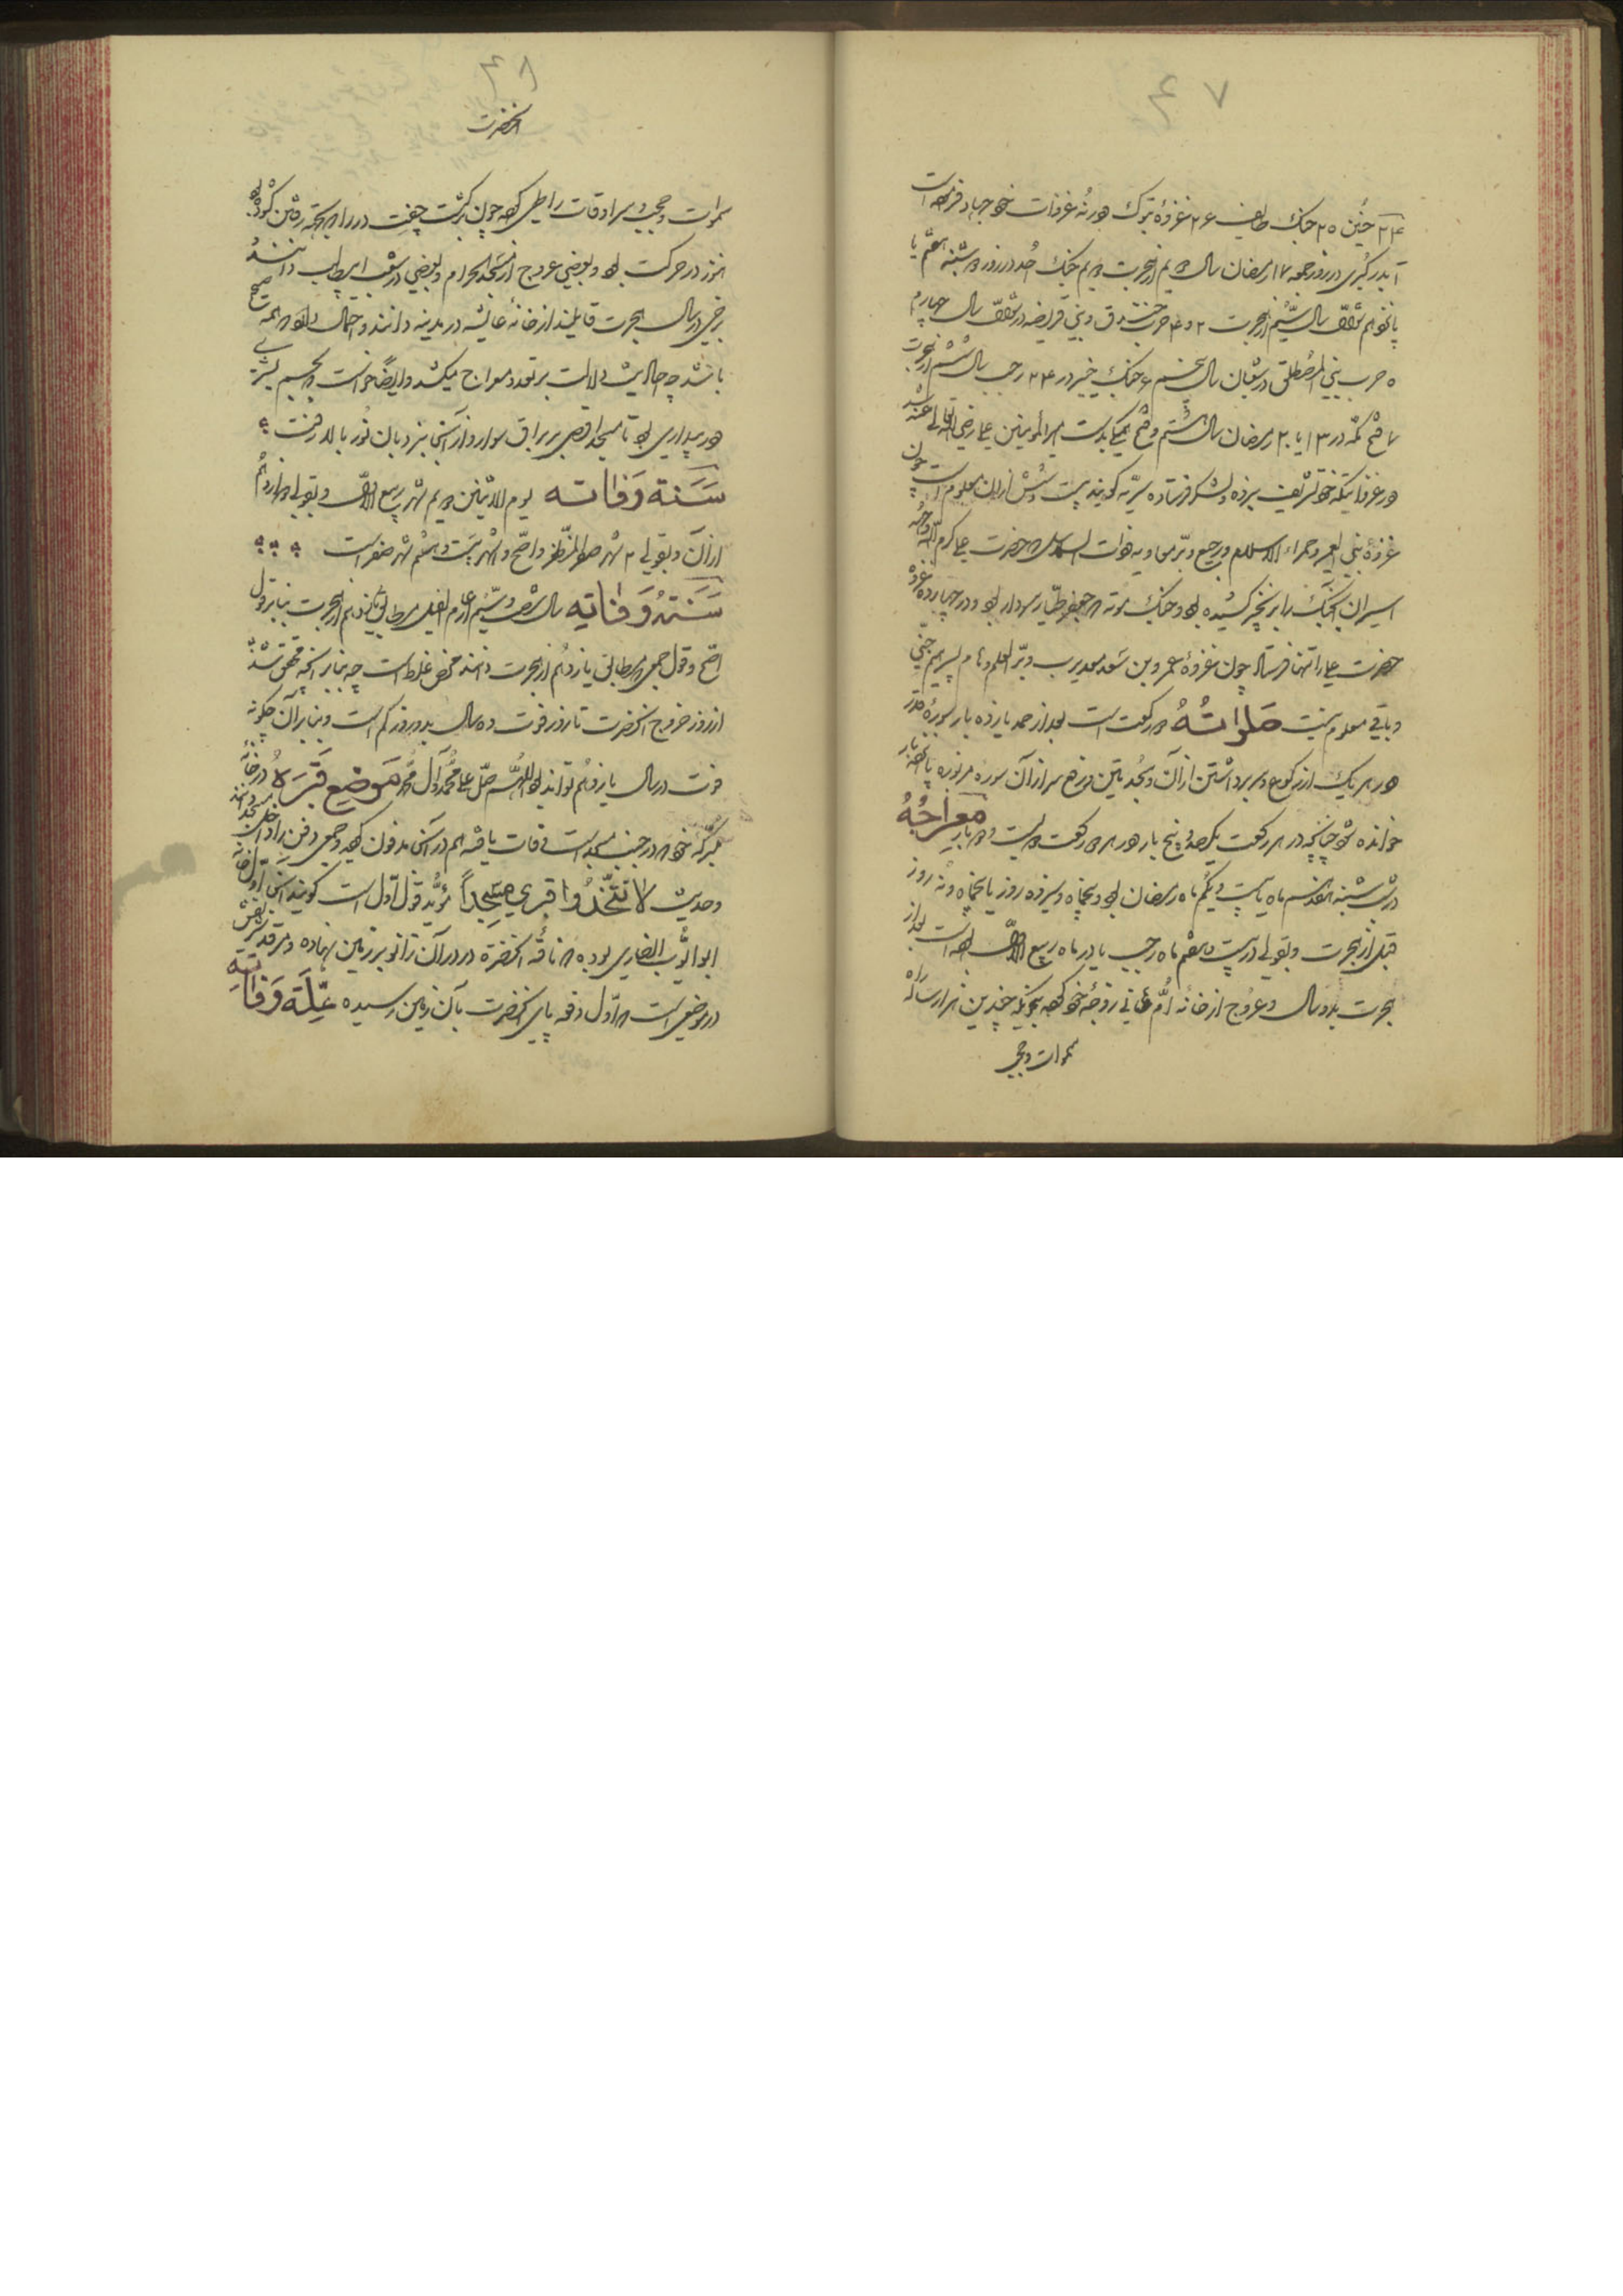 ۴۷
۲۴ حنین ۲۵ جنک طایف ۲۶ غزوهٔ تبوک در نُه غزوات خود جهاد فرموده است
۱ بدر کُبری در روز جمعه ۱۷ رمضان سال دویم از هجرت دویم جنک اُحد در روز شنبه هفتم یا
پانزدهم شوّال سال سیّم از هجرت ۳ و ۴ حرب خندق و بنی قُریضه در شوّال سال چهارم
۵ حرب بنی المُصطلق در شعبان سال پنجم ۶ جنک خیبر در ۲۴ رجب سال ششم از هجرت
۷ فتح مکّه در ۱۳ یا ۲۰ رمضان سال هشتم و فتح بدست امیرالمؤمنین علی رضی الله تعالی عنه شد
در غزواتیکه خود تشریف نبرده و لشکر فرستاده سریّه کویند بیست و شش از آن معلوم است چون
غزوهٔ بنی النضیر و حمراء الاسد و رجیع و بئر معاویه و ذات السلاسل که حضرت علی کرم الله وجهه
اسیران جنک را بزنجیر کشیده بود و جنک موته که جعفر طیّار سردار بود و در چهارده غزوه
حضرت علی را تنها فرستاد چون غزوهٔ عمرو بن معدیکرب و بئر العلم و نام پسر جنّی
و باقی معلوم نیست صَلواتُهُ دو رکعت است بعد از حمد پانزده بار سورهٔ قدر
در هر یک از رکوع و سر برداشتن از آن و سجدتین و رفع سر از آن سوره مزبوره پانزده بار
خوانده شود چنانچه در هر رکعت یکصد و پنج بار در هر دو رکعت دویست و ده بار مِعراجُهُ
در شب شنبه هفدهم ماه یا بیست و یکم ماه رمضان بود و پنجاه و سیزده روز یا پنجاه و نه روز
قبل از هجرت و بقولی در بیست و هفتم ماه رجب یا در ماه ربیع الاوّل بوده است بعد از
هجرت بدو سال و عروج از خانه اُمّ هانی زوجهٔ خود که چندین هزار ساله راه
سموات و حجب
۴۸
آنحضرت
سموات و حجب و سرادقات را طی کرده چون برکشت جفت در را که بحرکت رفتن کشوده بود
هنوز در حرکت بود و بعضی عروج از مسجد الحرام و بعضی در شعب ابیطالب دانند
برخی در سال هجرت قایلند از خانهٔ عایشه در مدینه دانند و احتمال دارد که همه صحیح
باشد چه احادیث دلالت بر تعدد معراج میکند و ایضاً خواست که بجسم بشری
در بیداری بود تا مسجد اقصی بر براق سوار و از آنجا بنردبان نُور بالا رفت
سَنَة وَفاته یوم الاثنین دویم شهر ربیع الاوّل و بقولی دوازدهم
از آن و بقولی ۲ شهر صفر المظفّر و اصح و اشهر بیست و هشتم شهر صفر است
سَنَةُ وَفاتِهِ سال شصت و سیّم از عام الفیل مطابق یازدهم از هجرت بنابر قول
اصحّ و قول جمعی که مطابق یازدهم از هجرت دانند محض غلط است چه بنابر آنچه محقق شد
از روز خروج آنحضرت تا روز فوت ده سال بدو روز کم است و بنابر آن چکونه
فوت در سال یازدهم تواند بود اللّهمّ صلّ علی محمّد و آل محمّد مَوضِع قَبرَهُ در خانهٔ
متبرکه خود که در جنب مسجد است وفات یافته هم در آنجا مدفون کردید و جمعی دفن را در داخل مسجد دانند
و حدیث لا تَتَّخذُوا قبری مسجِداً مؤیّد قول اوّل است کویند آنجا اوّل خانه
ابو ایّوب انصاری بوده که ناقه آنحضرة در در آن زانو بر زمین نهاده و مرقد شریفش
در موضعی است که اوّل دفعه پای آنحضرت بآن زمین رسیده عِلَّة وَفاتِهِ